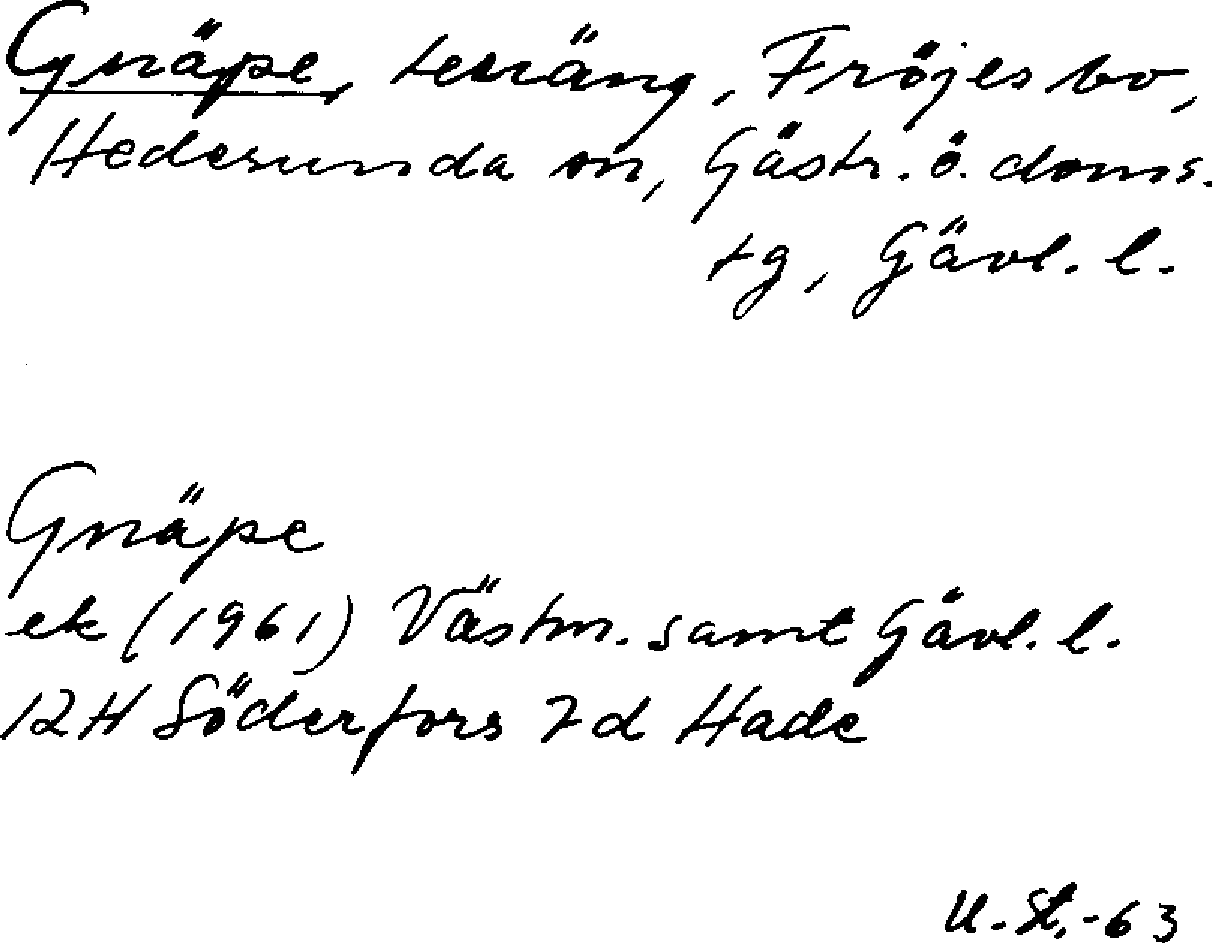 Gnäpe, terräng, Fröjesbo,
Hedesunda sn, Gästr. ö. doms.
tg, Gävl. l.
Gnäpe
ek (1961) Västm. samt Gävl. l.
12H Söderfors 7d Hade
U. St. -63